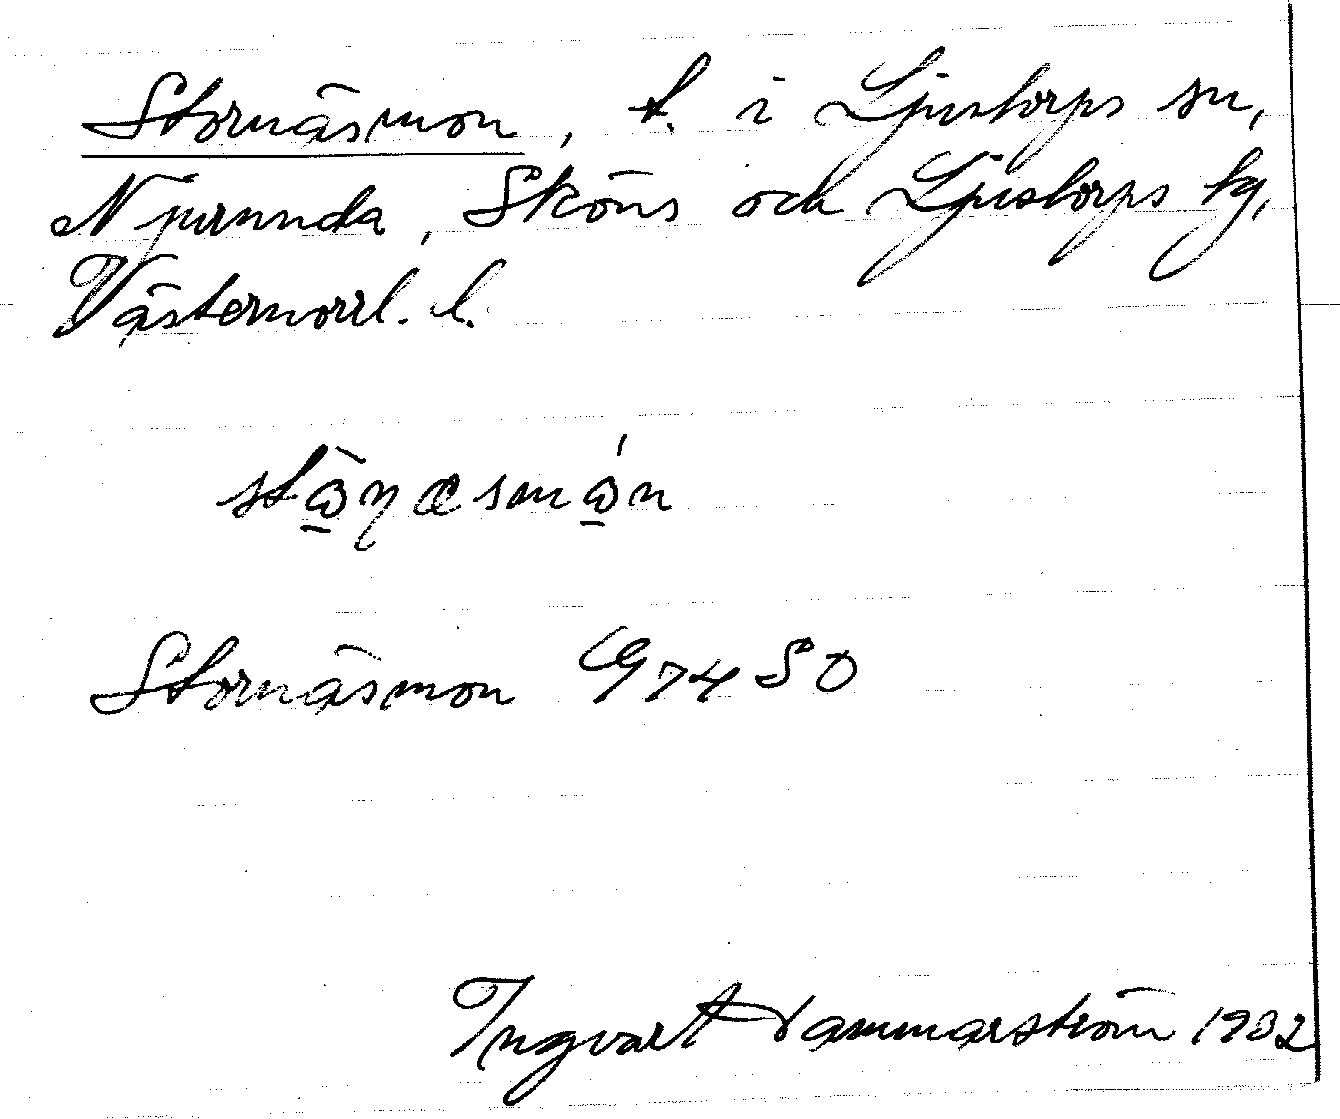 Stornäsmon, t. i Ljustorps sn,
Njurunda, Sköns och Ljustorps tg,
Västernorrl. l.
Stornäsmon G 74 SO
Ingvart Hammarström 1932